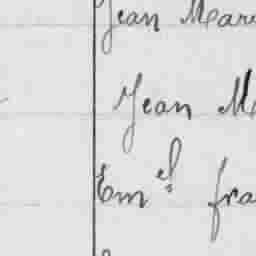 Jean Mar
Jean M
Em.el fra